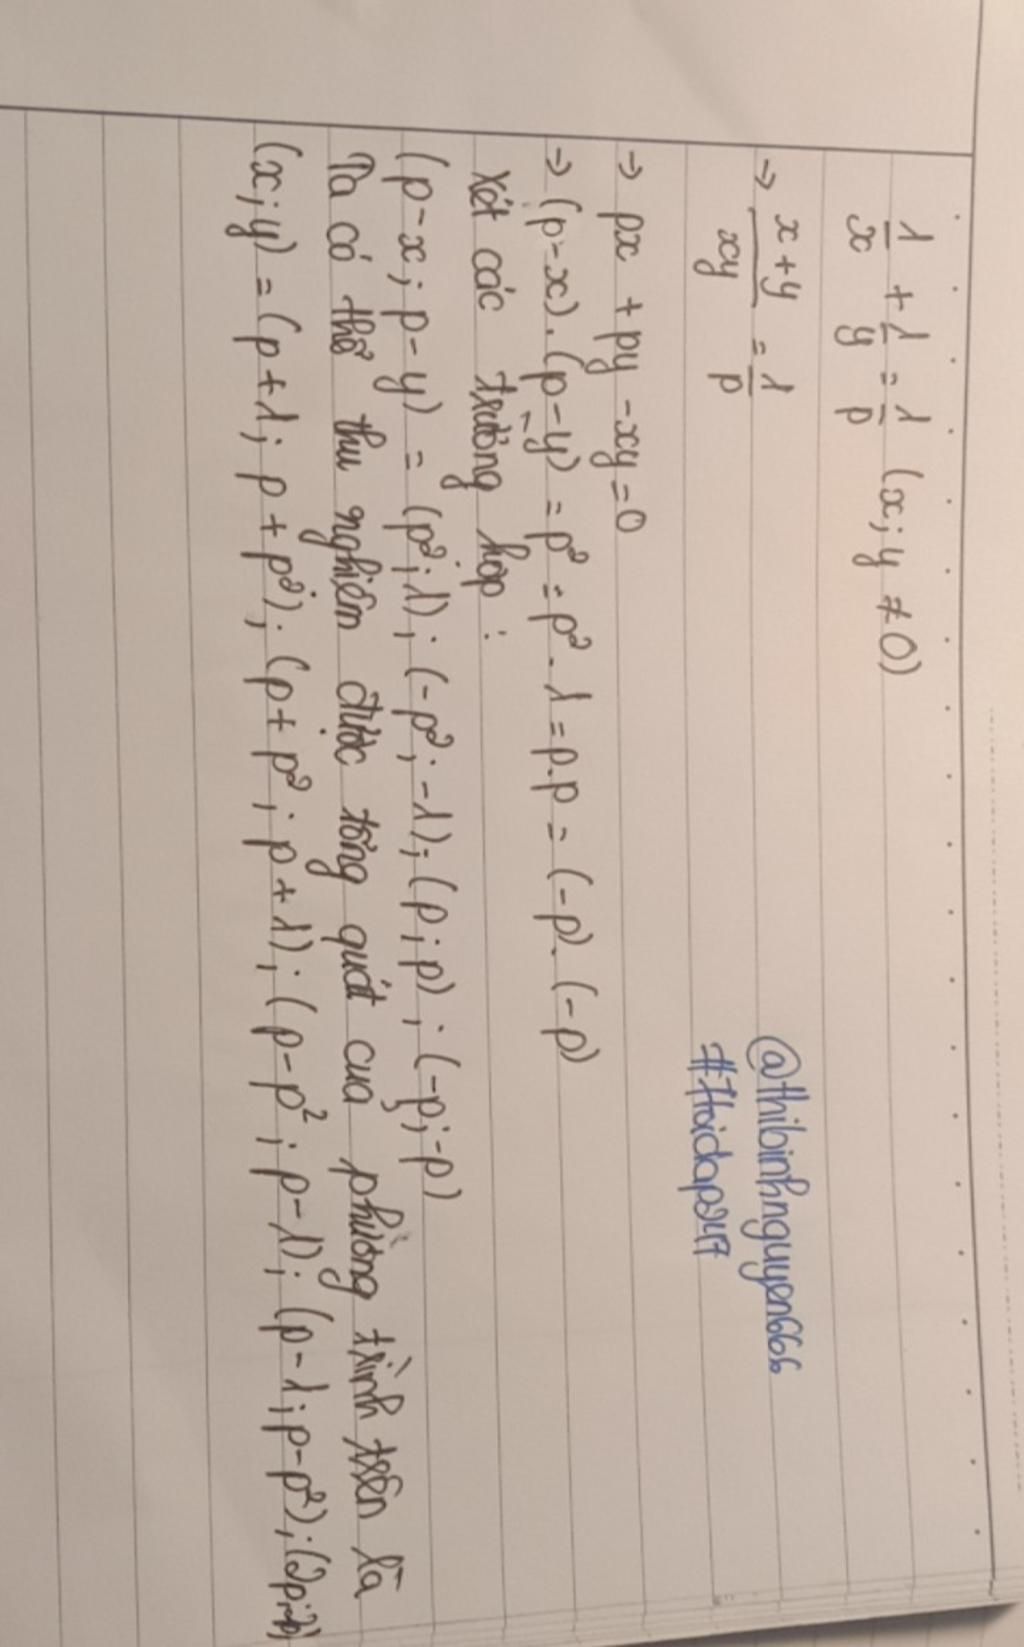 1/x + 1/y = 1/p (x; y ≠ 0)
@thibinhnguyen666
→ x+y/xy = 1/p
#Hoidap247
→ px + py - xy = 0
→ (p-x).(p-y) = p² = p².1 = p.p = (-p).(-p)
Xét các trường hợp:
(p-x; p-y) = (p²;1); (-p²;-1); (p;p); (-p;-p)
Ta có thể thu nghiệm được tổng quát của phương trình trên là
(x;y) = (p+1; p+p²); (p+p²; p+1); (p-p²; p-1); (p-1; p-p²);